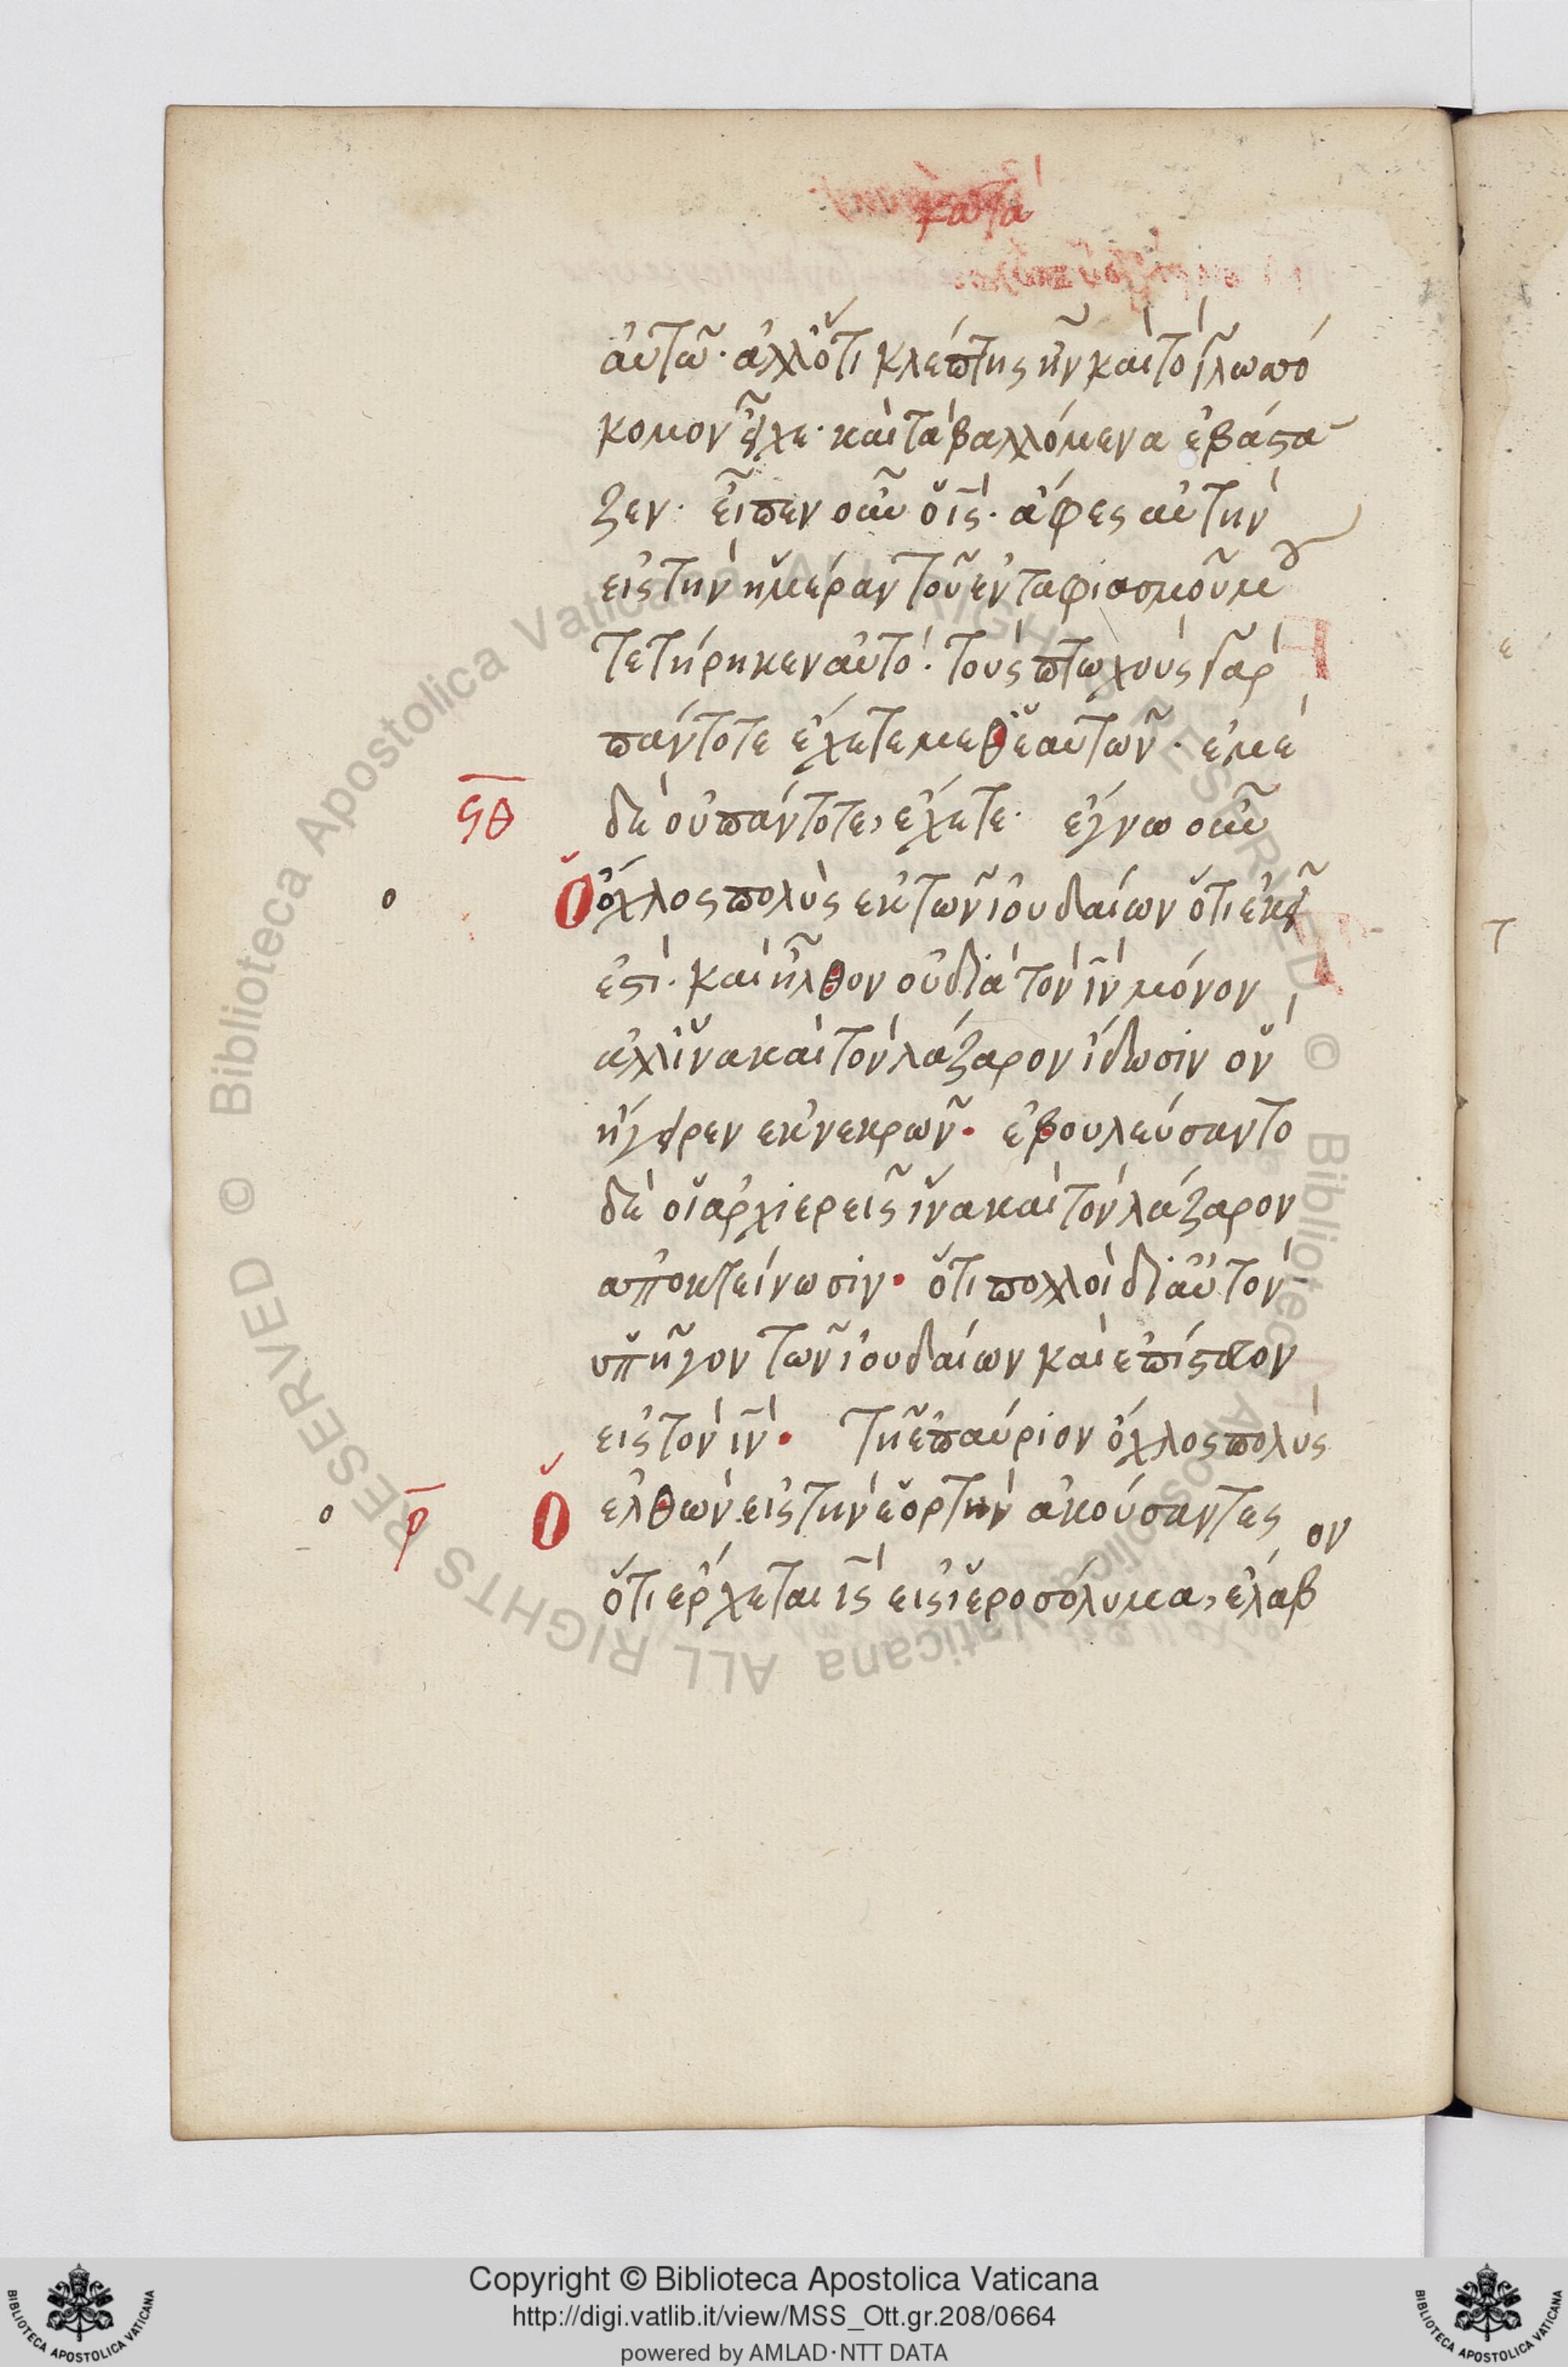 κατα
αὐτῶ· ἀλλ ὅτι κλέπτης ἦν καὶ τὸ γλωσσό
κομον εἶχε· καὶ τὰ βαλλόμενα ἐβάστα
ζεν· εἶπεν οὖν ὁ ις· ἄφες αὐτὴν
εἰς τὴν ἡμέραν τοῦ ἐνταφιασμοῦ μου
τετήρηκεν αὐτό· τοὺς πτωχοὺς γὰρ
πάντοτε ἔχετε μεθ ἑαυτῶν· ἐμὲ
ϟθ
δὲ οὐ πάντοτε, ἔχετε· ἔγνω οὖν
ο
Ὁ ὄχλος πολὺς ἐκ τῶν ἰουδαίων ὅτι ἐκεῖ
ἐστι· καὶ ἦλθον οὐ διὰ τὸν ιν μόνον
ἀλλ ἵνα καὶ τὸν λάζαρον ἴδωσιν ὃν
ἤγειρεν ἐκ νεκρῶν· ἐβουλεύσαντο
δὲ οἱ ἀρχιερεῖς ἵνα καὶ τὸν λάζαρον
ἀποκτείνωσιν· ὅτι πολλοὶ δι αὐτὸν
ὑπῆγον τῶν ἰουδαίων καὶ ἐπίστευον
εἰς τὸν ιν· τῆ ἐπαύριον ὄχλος πολὺς
ο ρ Ὁ
ἐλθὼν εἰς τὴν ἑορτὴν ἀκούσαντες
ὅτι ἔρχεται ις εἰς ἱεροσόλυμα, ἔλαβον
ε
τ
© Biblioteca Apostolica Vaticana ALL RIGHTS RESERVED
© Biblioteca Apostolica Vaticana ALL RIGHTS RESERVED
Copyright © Biblioteca Apostolica Vaticana
http://digi.vatlib.it/view/MSS_Ott.gr.208/0664
powered by AMLAD·NTT DATA
BIBLIOTECA APOSTOLICA VATICANA
BIBLIOTECA APOSTOLICA VATICANA